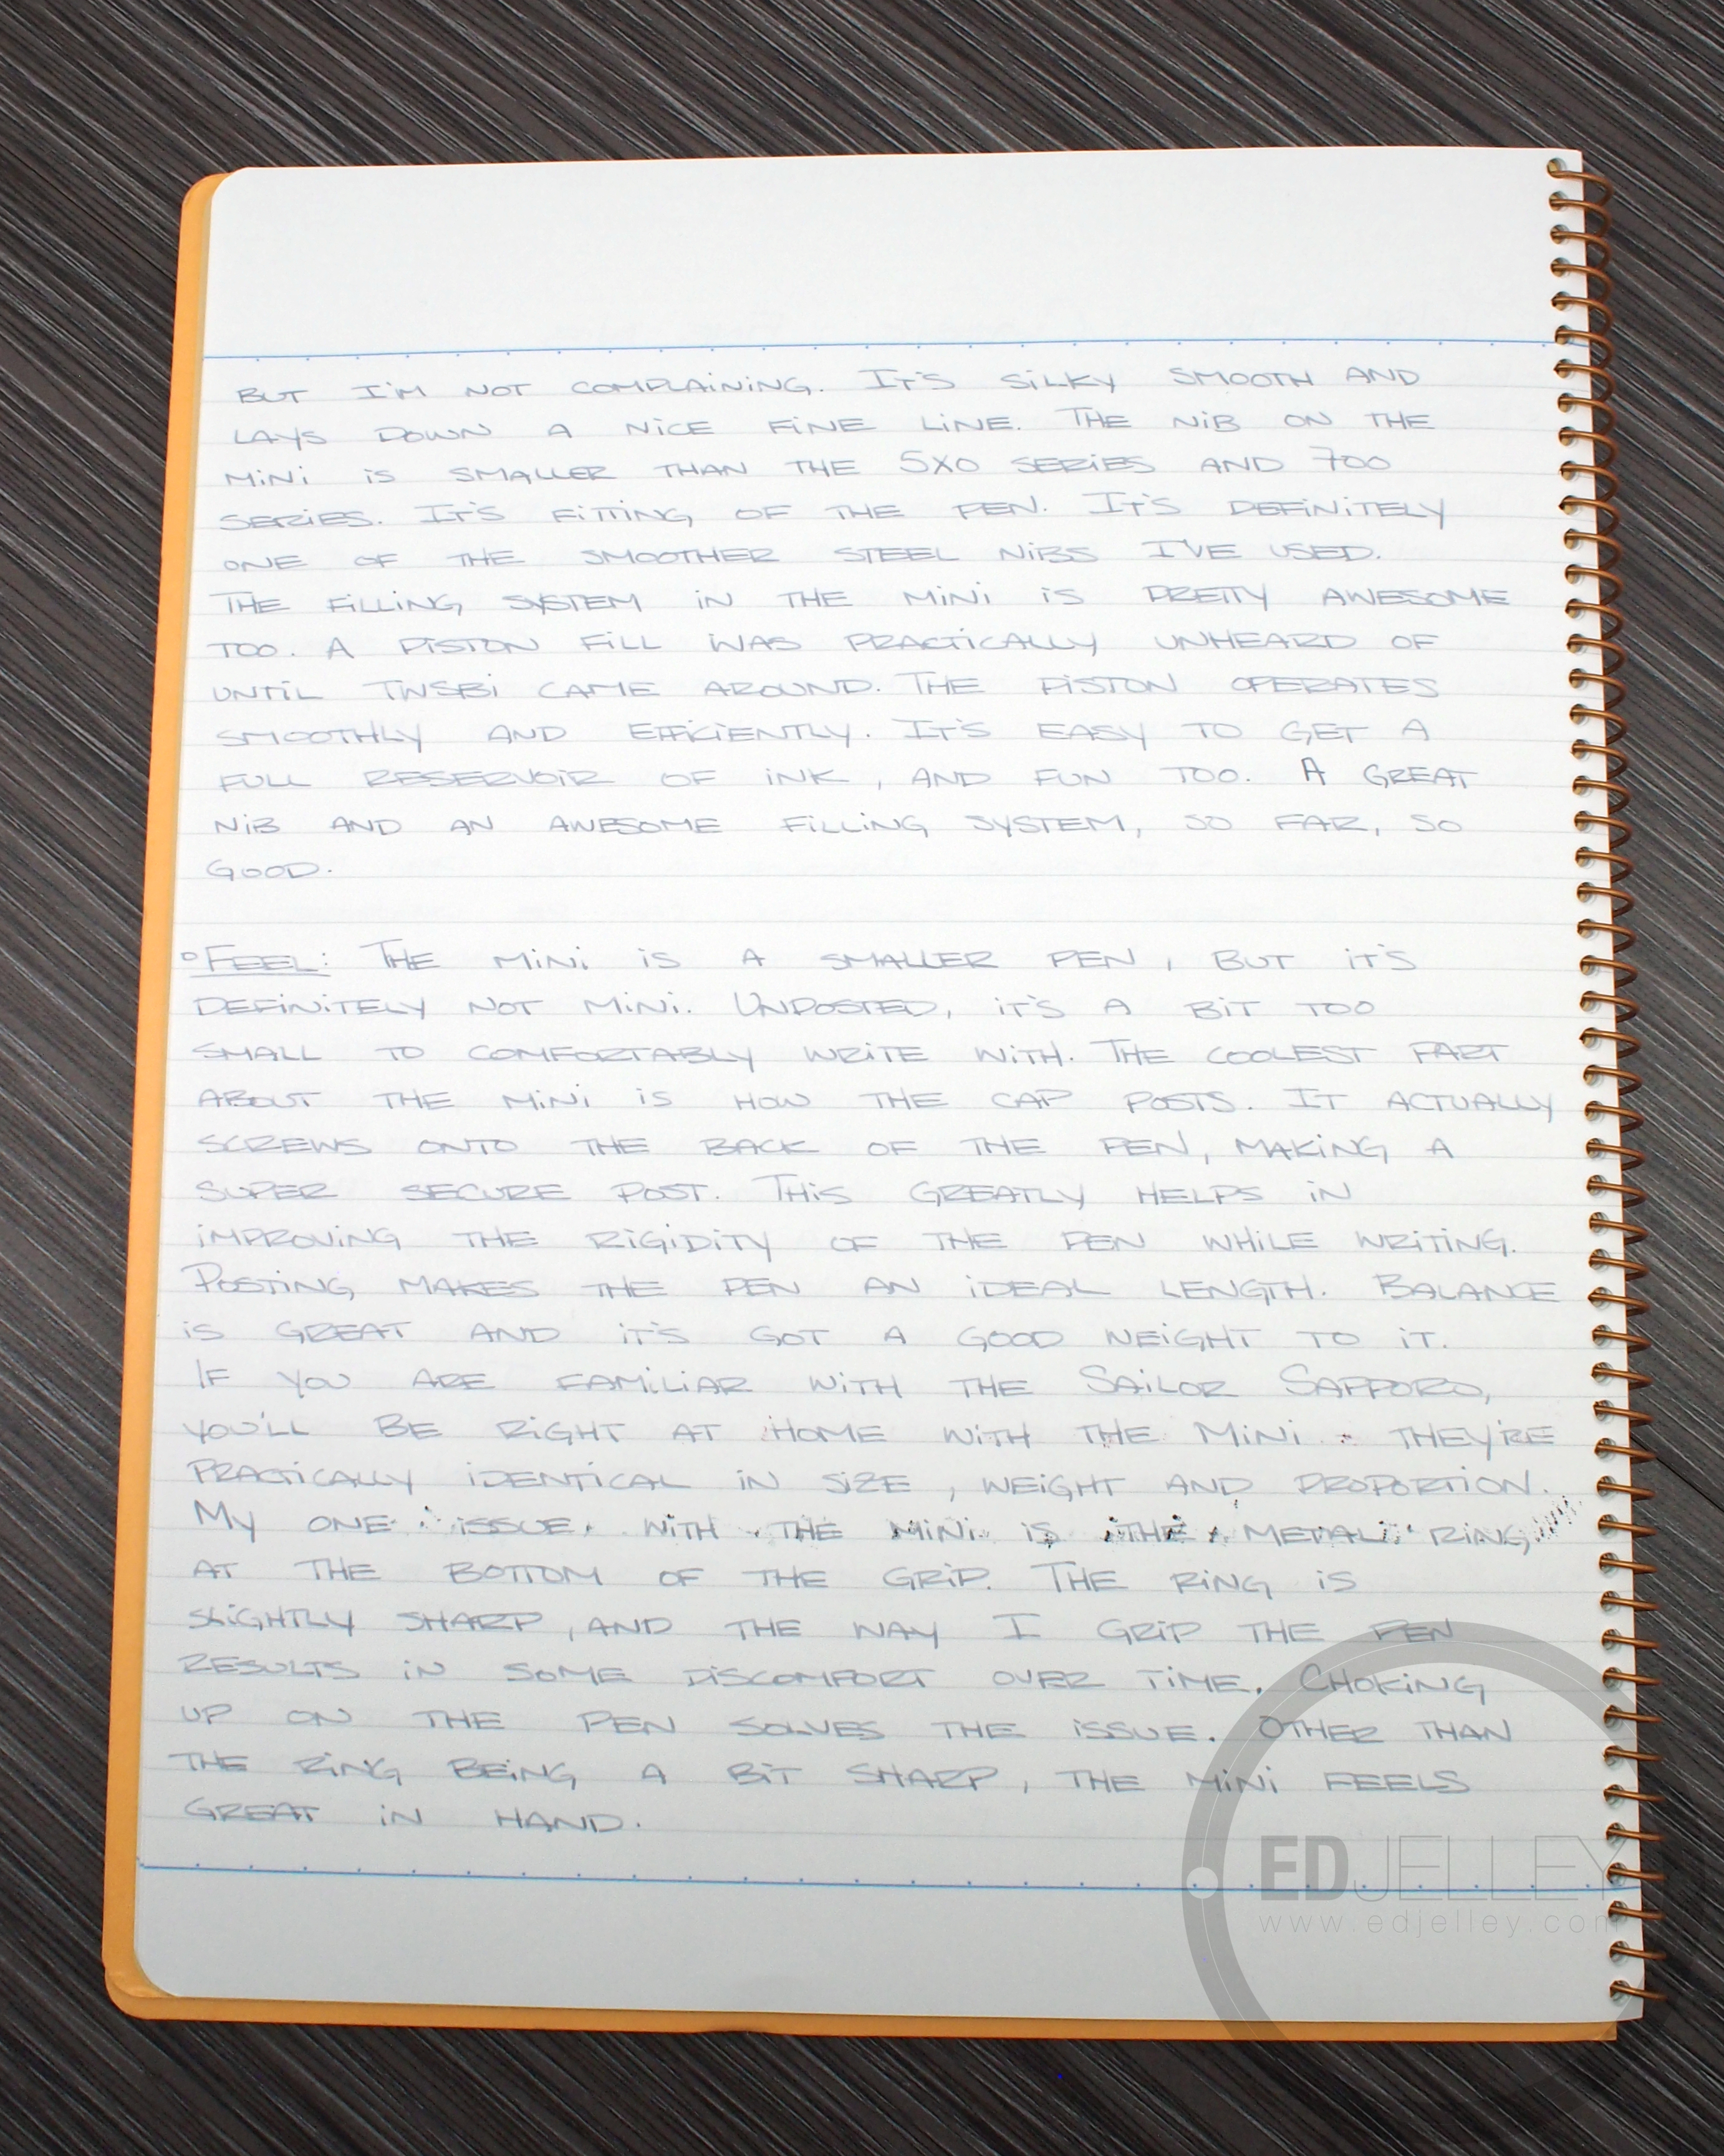 BUT I'M NOT COMPLAINING. IT'S SILKY SMOOTH AND
LAYS DOWN A NICE FINE LINE. THE NIB ON THE
MINI IS SMALLER THAN THE 5X0 SERIES AND 700
SERIES. IT'S FITTING OF THE PEN. IT'S DEFINITELY
ONE OF THE SMOOTHER STEEL NIBS I'VE USED.
THE FILLING SYSTEM IN THE MINI IS PRETTY AWESOME
TOO. A PISTON FILL WAS PRACTICALLY UNHEARD OF
UNTIL TWSBI CAME AROUND. THE PISTON OPERATES
SMOOTHLY AND EFFICIENTLY. IT'S EASY TO GET A
FULL RESERVOIR OF INK, AND FUN TOO. A GREAT
NIB AND AN AWESOME FILLING SYSTEM, SO FAR, SO
GOOD.
°FEEL: THE MINI IS A SMALLER PEN, BUT IT'S
DEFINITELY NOT MINI. UNPOSTED, IT'S A BIT TOO
SMALL TO COMFORTABLY WRITE WITH. THE COOLEST PART
ABOUT THE MINI IS HOW THE CAP POSTS. IT ACTUALLY
SCREWS ONTO THE BACK OF THE PEN, MAKING A
SUPER SECURE POST. THIS GREATLY HELPS IN
IMPROVING THE RIGIDITY OF THE PEN WHILE WRITING.
POSTING MAKES THE PEN AN IDEAL LENGTH. BALANCE
IS GREAT AND IT'S GOT A GOOD WEIGHT TO IT.
IF YOU ARE FAMILIAR WITH THE SAILOR SAPPORO,
YOU'LL BE RIGHT AT HOME WITH THE MINI. THEY'RE
PRACTICALLY IDENTICAL IN SIZE, WEIGHT AND PROPORTION.
MY ONE ISSUE WITH THE MINI IS THE METAL RING
AT THE BOTTOM OF THE GRIP. THE RING IS
SLIGHTLY SHARP, AND THE WAY I GRIP THE PEN
RESULTS IN SOME DISCOMFORT OVER TIME. CHOKING
UP ON THE PEN SOLVES THE ISSUE. OTHER THAN
THE RING BEING A BIT SHARP, THE MINI FEELS
GREAT IN HAND.
EDJELLEY
www.edjelley.com